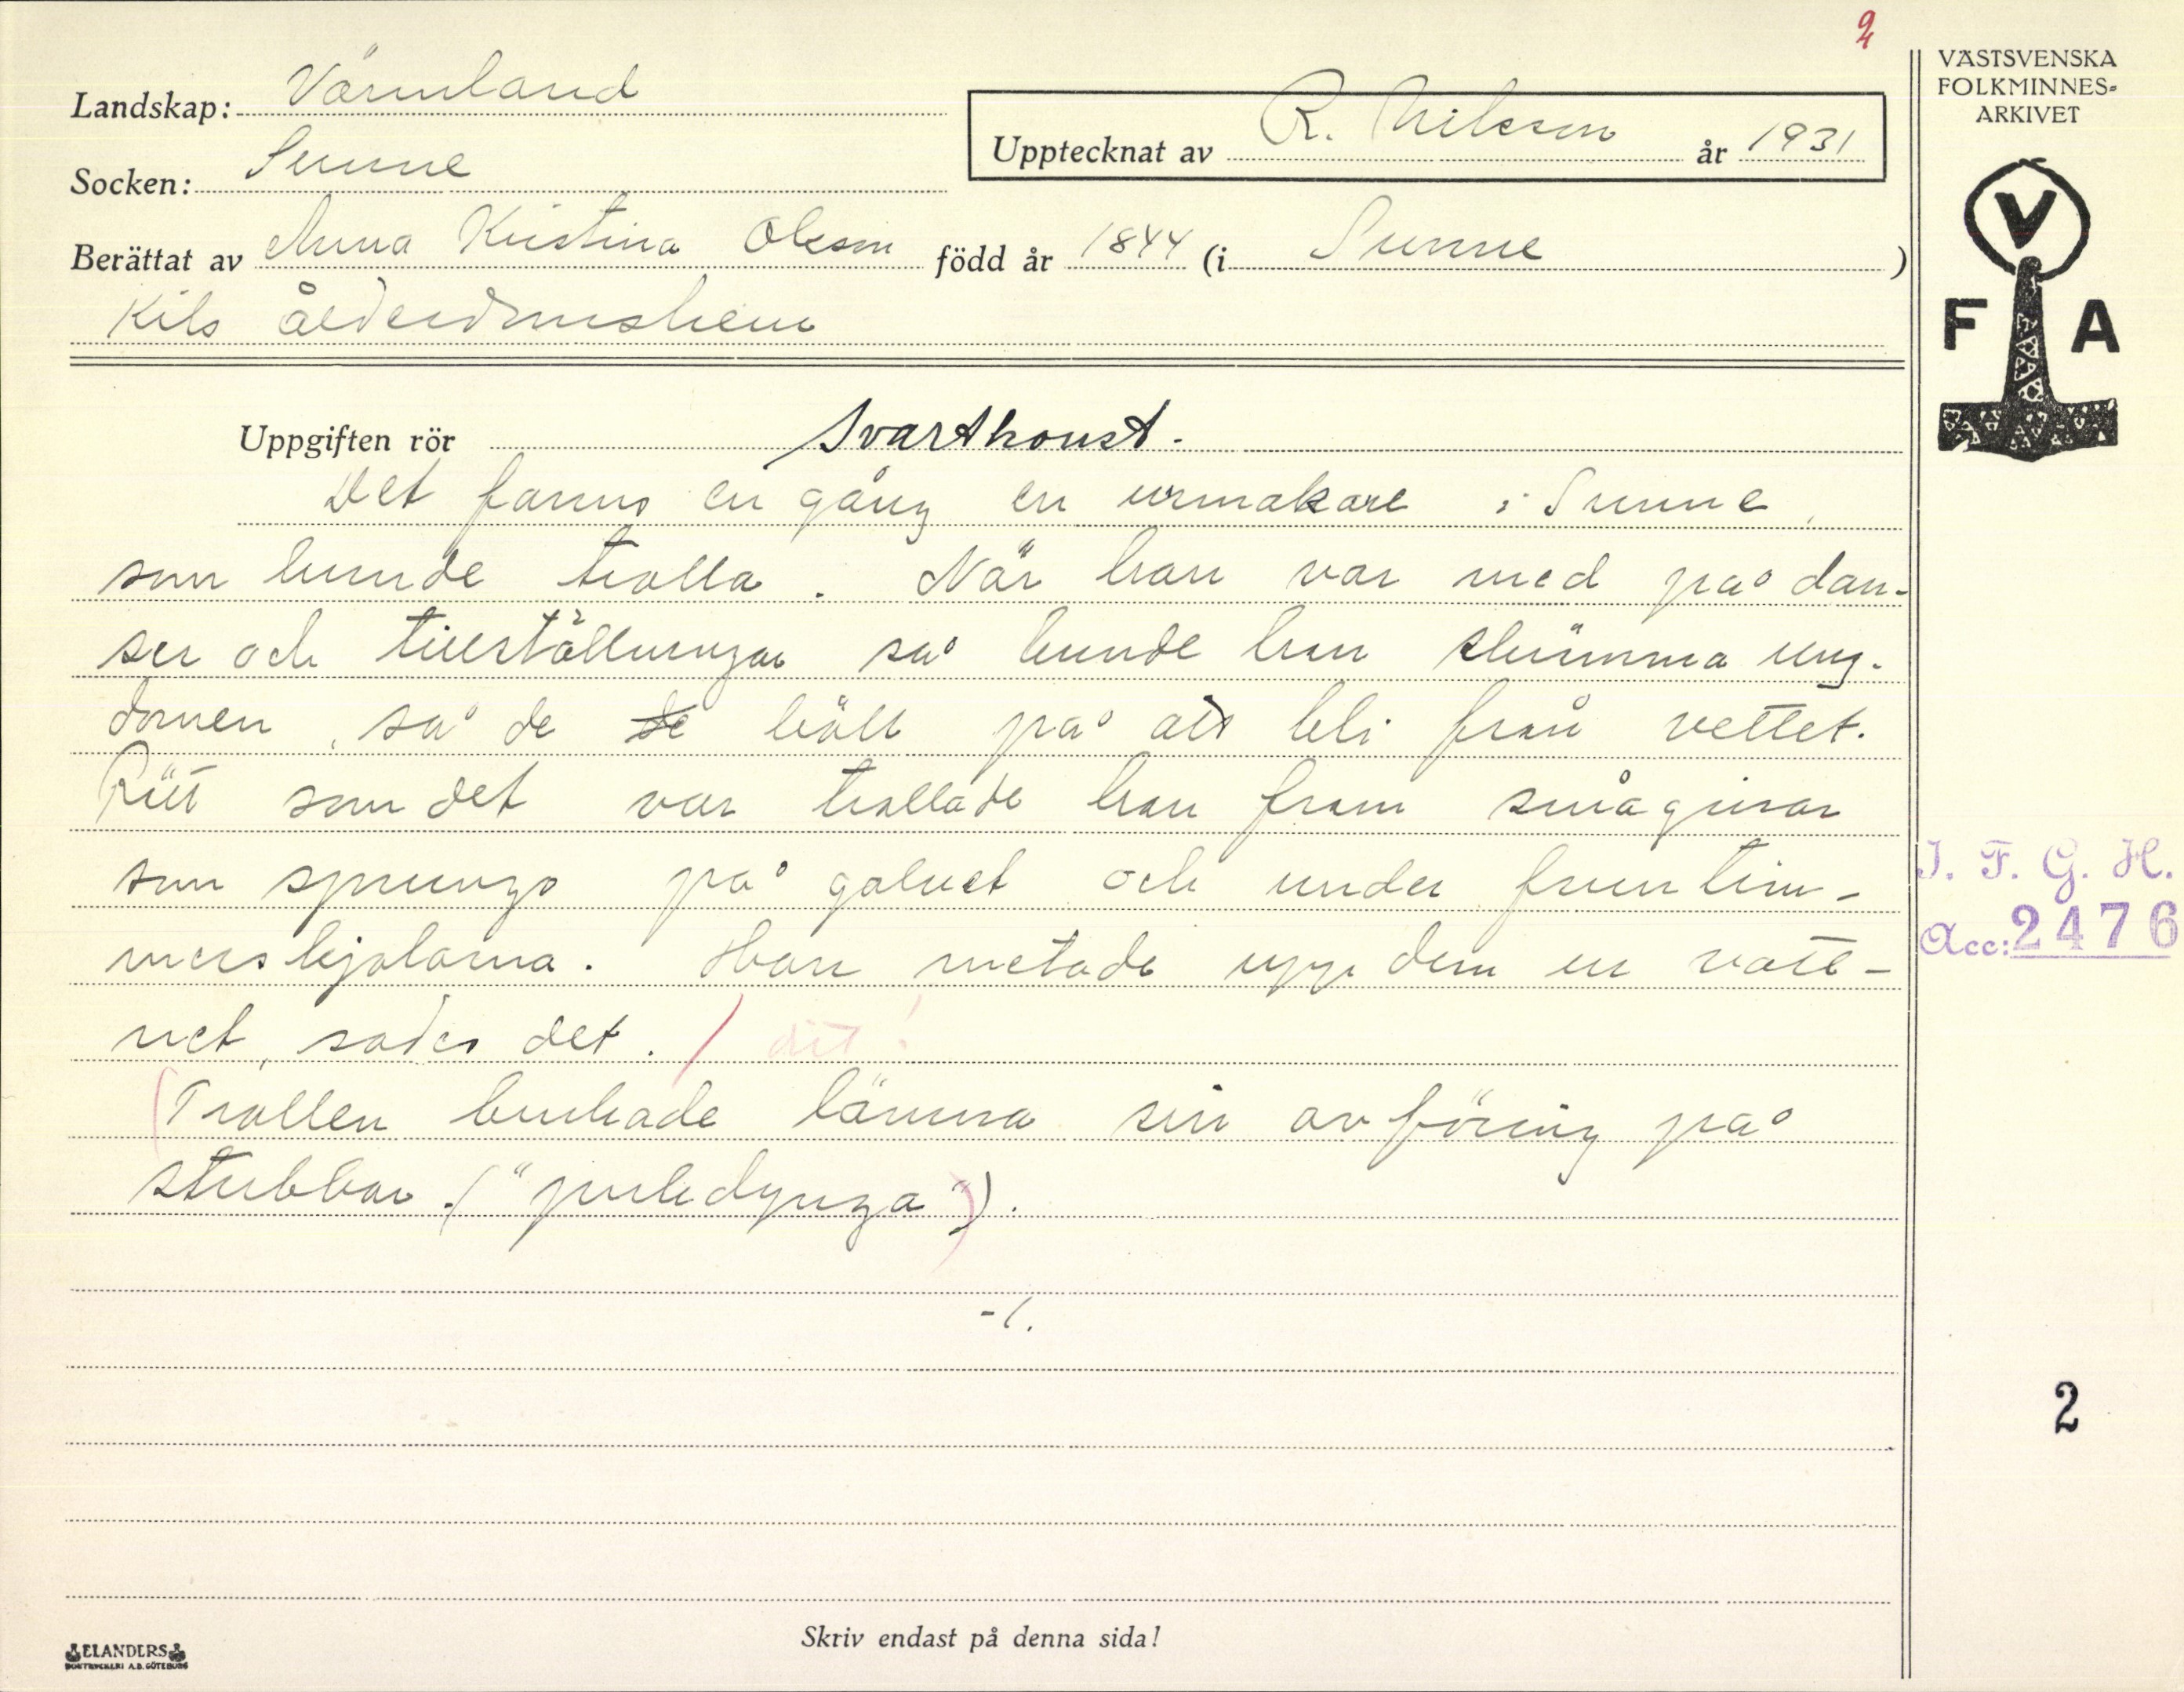 2
VÄSTSVENSKA
FOLKMINNES-
ARKIVET
V
F A
Landskap: Värmland
Upptecknat av R. Nilsson år 1931
Socken: Sunne
Berättat av Anna Kristina Olsson född år 1844 (i Sunne)
Kils ålderdomshem
Uppgiften rör Svartkonst.
Det fanns en gång en urmakare i Sunne,
som kunde trolla. När han var med på dan-
ser och tillställningar så kunde han skrämma ung-
domen, så de de höll på att bli från vettet.
Rätt som det var trollade han fram smågrisar
som sprungo på golvet och under fruntim-
merskjolarna. Han metade upp dem ur vatt-
net, sades det. / dit!
(Trollen brukade lämna sin avföring på
stubbar. ("pukdynga")).
-/.
I. F. G. H.
Acc: 2476
2
Skriv endast på denna sida!
ELANDERS
BOKTRYCKERI A.B. GÖTEBORG